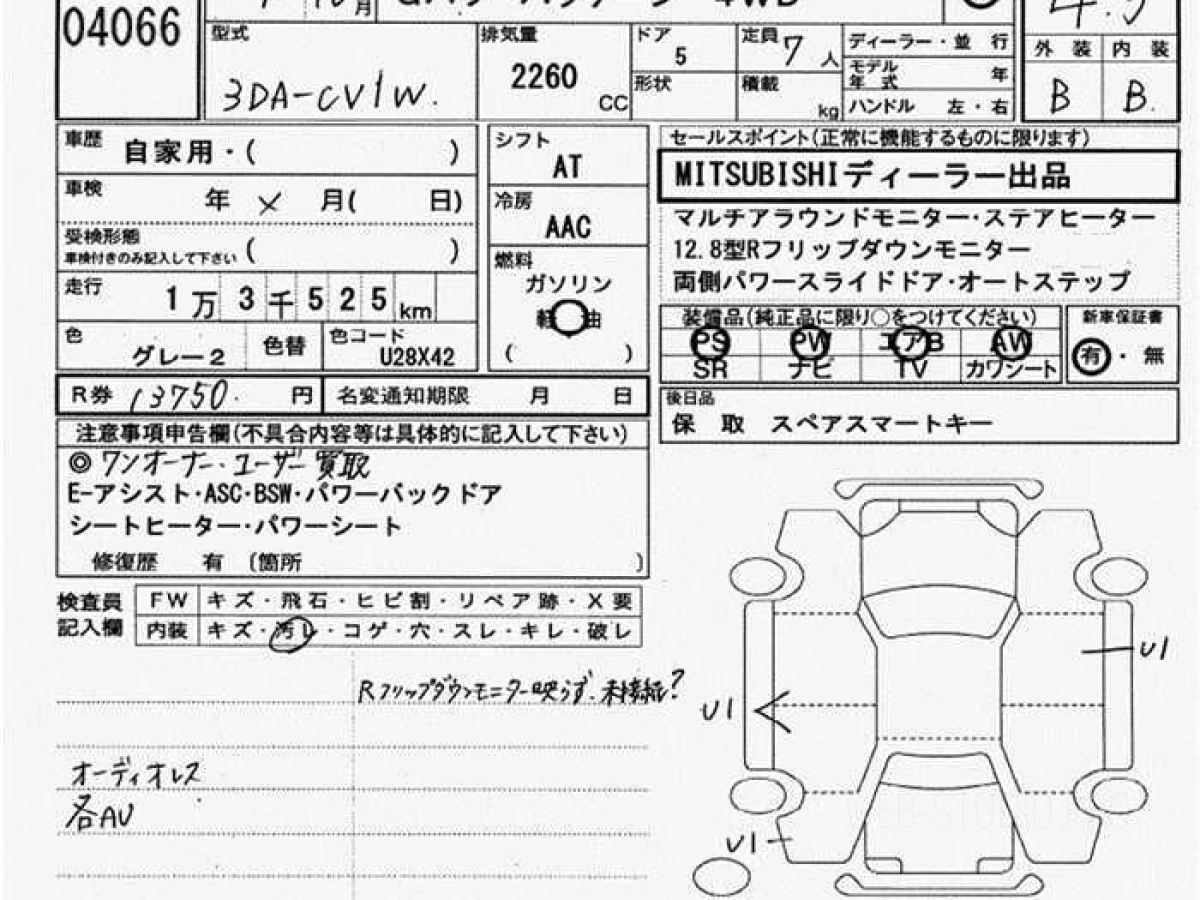 04066
月
4WD
4.5
型式
3DA-CV1W.
排気量
2260
CC
ドア
5
形状
定員 7 人
積載
kg
ディーラー・並 行
モデル年式 年
ハンドル 左・右
外 装 内 装
B B.
車歴
自家用・( )
車検
年 × 月( 日)
受検形態
車検付きのみ記入して下さい ( )
走行
1万3千525km
色
グレー2
色替
色コード
U28X42
シフト
AT
冷房
AAC
燃料
ガソリン
軽 油
( )
セールスポイント(正常に機能するものに限ります)
MITSUBISHIディーラー出品
マルチアラウンドモニター・ステアヒーター
12.8型Rフリップダウンモニター
両側パワースライドドア・オートステップ
装備品(純正品に限り○をつけてください)
PS PW エアB AW
SR ナビ TV カワシート
新車保証書
有・無
R券 13750. 円
名変通知期限 月 日
後日品
保 取 スペアスマートキー
注意事項申告欄(不具合内容等は具体的に記入して下さい)
◎ワンオーナー・ユーザー買取
E-アシスト・ASC・BSW・パワーバックドア
シートヒーター・パワーシート
修復歴 有 〔箇所 〕
検査員
記入欄
FW キズ・飛石・ヒビ割・リペア跡・X要
内装 キズ・汚し・コゲ・穴・スレ・キレ・破レ
Rフリップダウンモニター映らず.未接続?
オーディオレス
各AU
U1
U1
U1